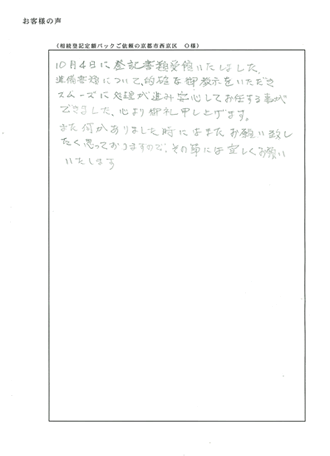 お客様の声
(相続登記定額パックご依頼の京都市西京区 O様)
10月4日に登記書類受領いたしました。
準備書類について、的確な御教示をいただき
スムーズに処理が進み安心してお任せする事が
できました。心より御礼申し上げます。
また何かありました時にはまたお願い致し
たく思っておりますので、その節には宜しくお願い
いたします